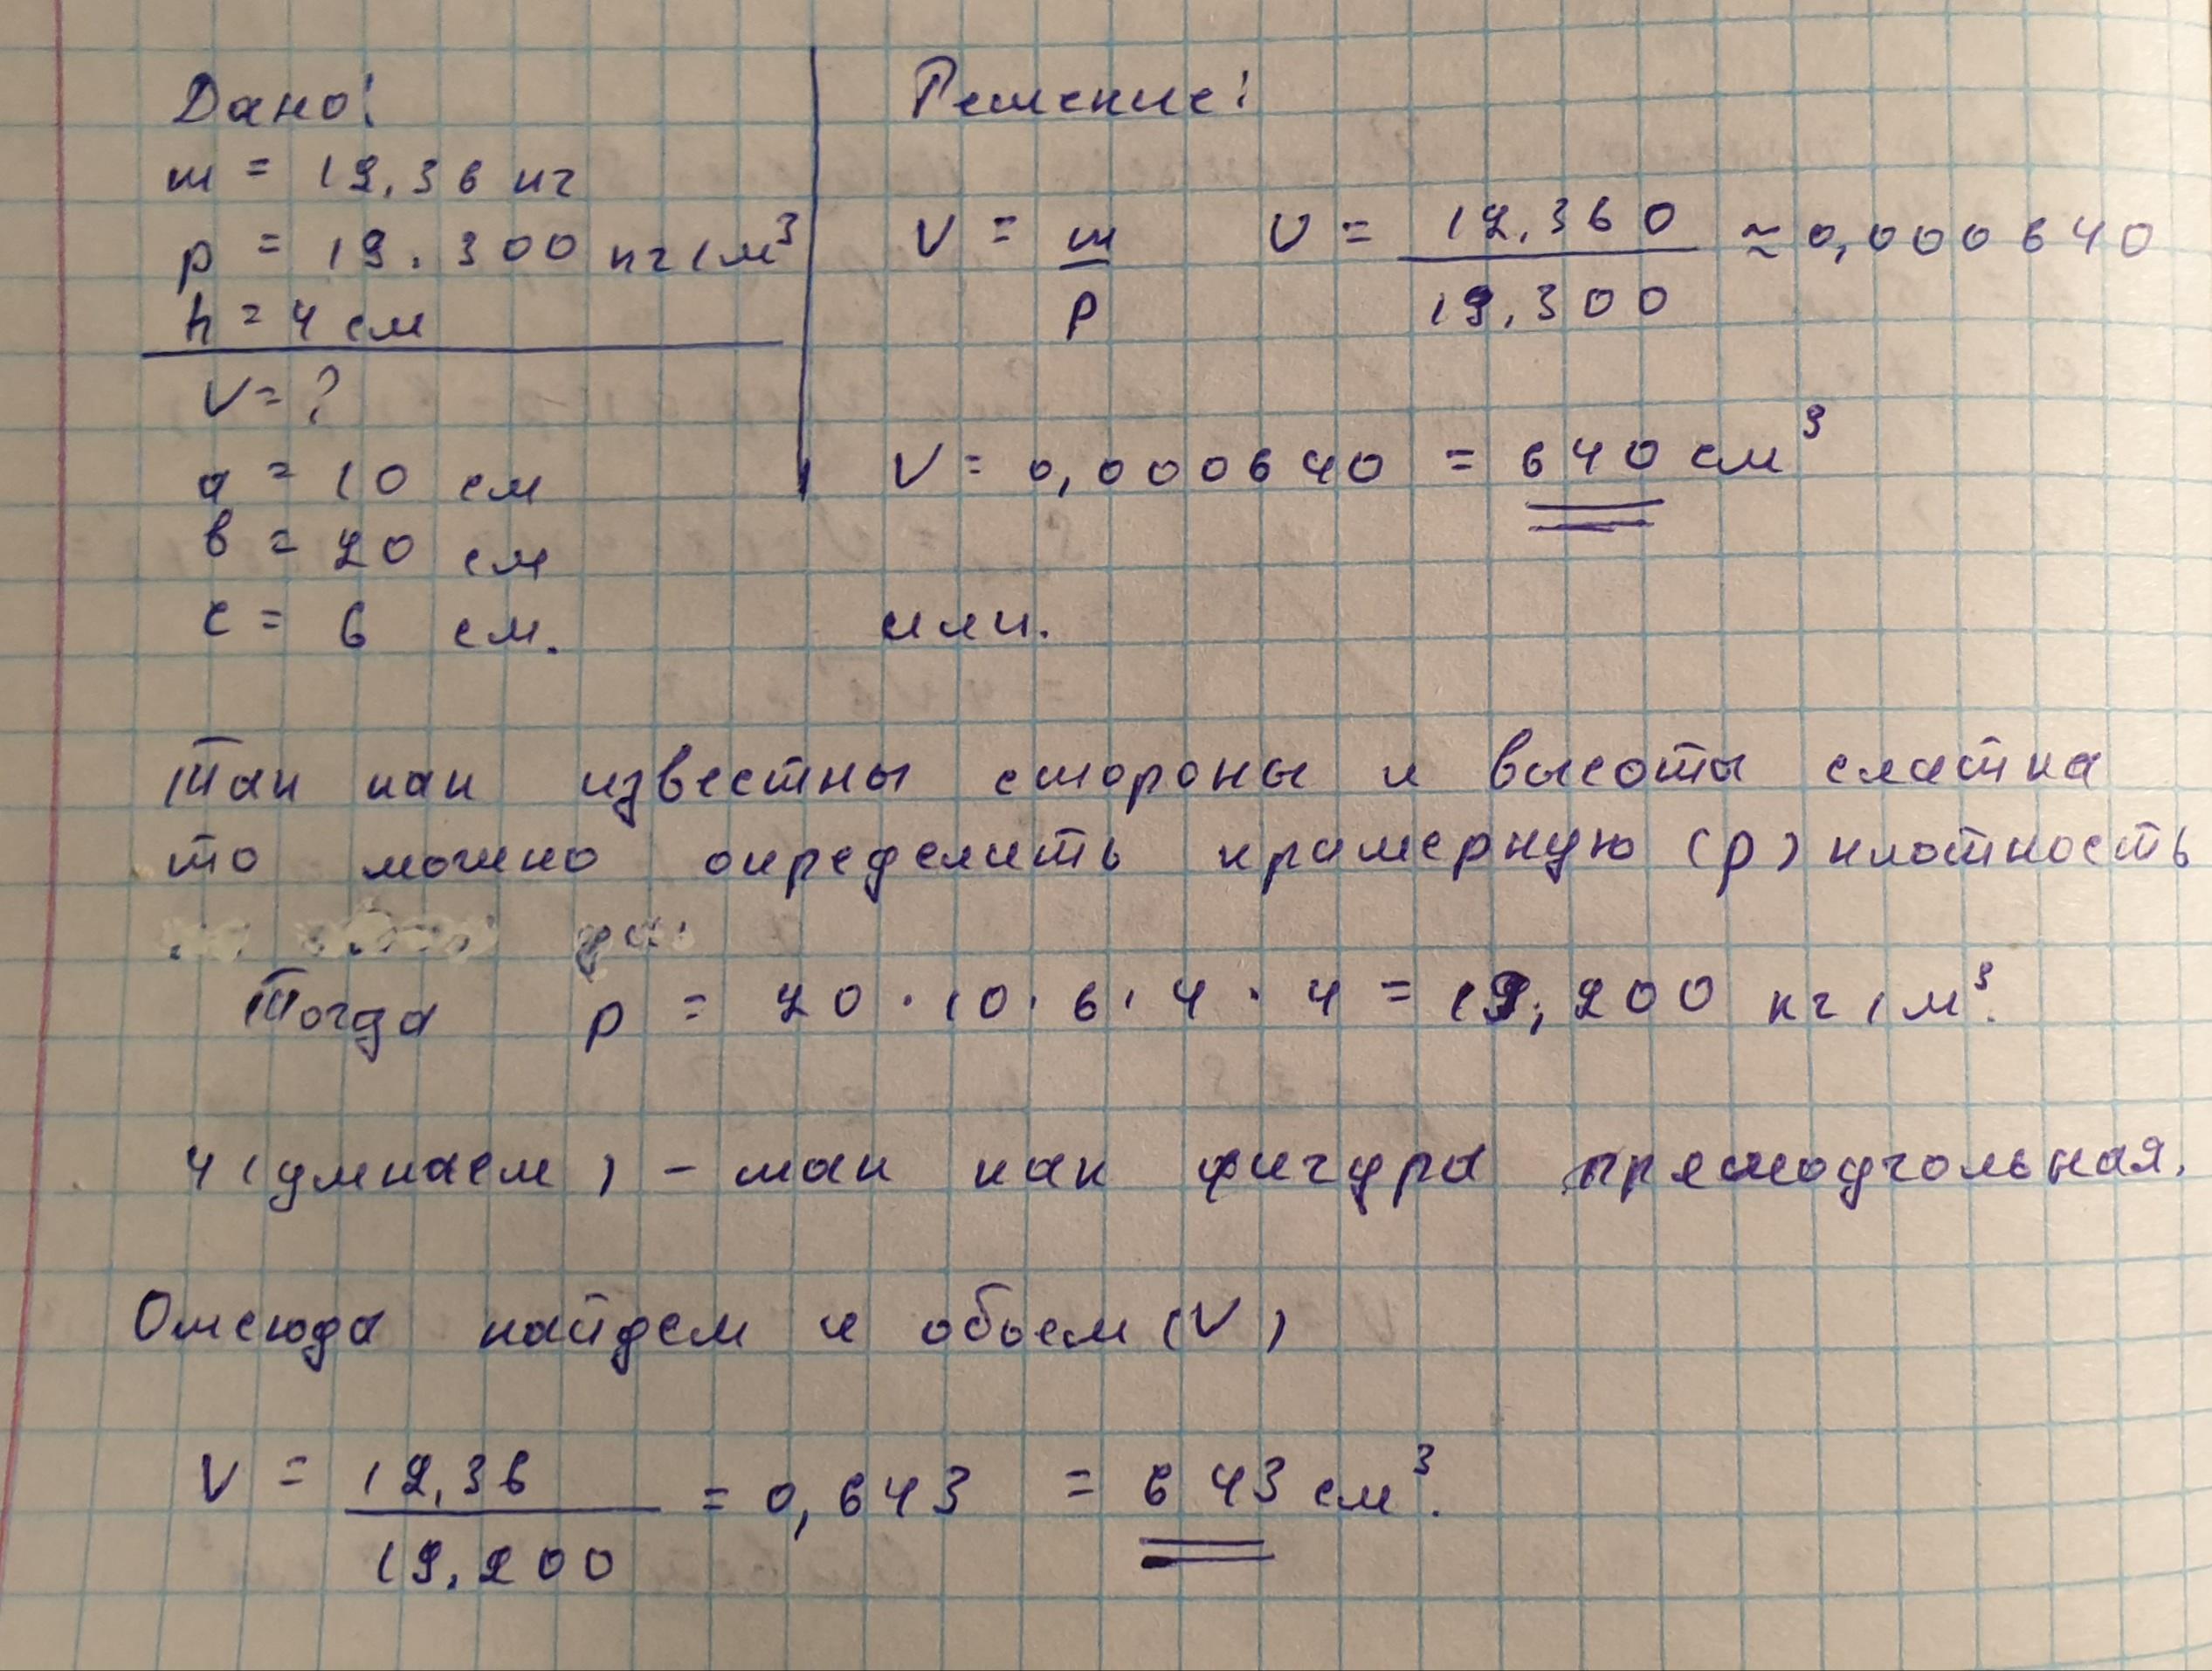 Дано:
m = 12,36 кг
p = 19.300 кг/м³
h = 4 см
V = ?
a = 10 см
в = 20 см
c = 6 см.
Решение:
V = m/p V = 12,360/19,300 ≈ 0,000640
V = 0,000640 = 640 см³
или.
Так как известны стороны и высоты слитка
то можно определить примерную (p) плотность
Тогда p = 20 · 10 · 6 · 4 · 4 = 19,200 кг/м³.
4 (умнаем) - так как фигура прямоугольная.
Отсюда найдем и обьем (V)
V = 12,36/19,200 = 0,643 = 643 см³.